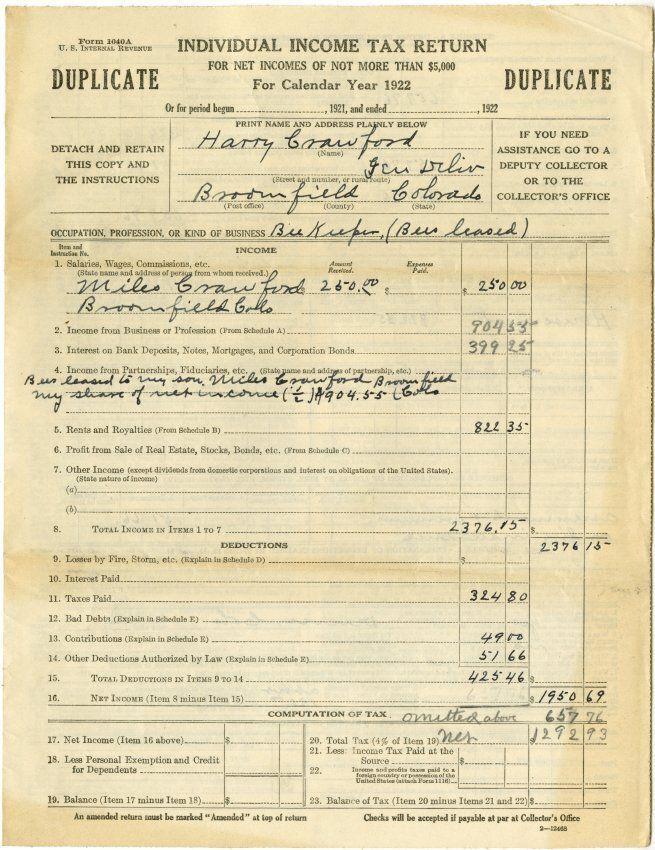 Form 1040A
U. S. INTERNAL REVENUE
INDIVIDUAL INCOME TAX RETURN
FOR NET INCOMES OF NOT MORE THAN $5,000
For Calendar Year 1922
DUPLICATE
DUPLICATE
Or for period begun ____, 1921, and ended ____, 1922
DETACH AND RETAIN
THIS COPY AND
THE INSTRUCTIONS
PRINT NAME AND ADDRESS PLAINLY BELOW
Harry Crawford
(Name)
Gen Deliv
(Street and number, or rural route)
Broomfield Colorado
(Post office) (County) (State)
IF YOU NEED
ASSISTANCE GO TO A
DEPUTY COLLECTOR
OR TO THE
COLLECTOR'S OFFICE
OCCUPATION, PROFESSION, OR KIND OF BUSINESS Bee Keeper, (Bees leased)
Item and
Instruction No.
INCOME
1. Salaries, Wages, Commissions, etc. Amount Received. Expenses Paid.
(State name and address of person from whom received.)
Miles Crawford $ 250.00 $ $ 250 00
Broomfield Colo
2. Income from Business or Profession (From Schedule A) 904 55
3. Interest on Bank Deposits, Notes, Mortgages, and Corporation Bonds 399 25
4. Income from Partnerships, Fiduciaries, etc. (State name and address of partnership, etc.)
Bees leased to my son. Miles Crawford Broomfield
my share of net income (1/2) $904.55 (Colo
5. Rents and Royalties (From Schedule B) 822 35
6. Profit from Sale of Real Estate, Stocks, Bonds, etc. (From Schedule C)
7. Other Income (except dividends from domestic corporations and interest on obligations of the United States).
(State nature of income)
(a)
(b)
8. TOTAL INCOME IN ITEMS 1 TO 7 2376.15 $
DEDUCTIONS 2376 15
9. Losses by Fire, Storm, etc. (Explain in Schedule D) $
10. Interest Paid
11. Taxes Paid 324 80
12. Bad Debts (Explain in Schedule E)
13. Contributions (Explain in Schedule E) 49 00
14. Other Deductions Authorized by Law (Explain in Schedule E) 51 66
15. TOTAL DEDUCTIONS IN ITEMS 9 TO 14 425 46 $
16. NET INCOME (Item 8 minus Item 15) $ 1950 69
COMPUTATION OF TAX omitted above 657 76
17. Net Income (Item 16 above) $
18. Less Personal Exemption and Credit
for Dependents
19. Balance (Item 17 minus Item 18) $
20. Total Tax (4% of Item 19) Net $ 1292 93
21. Less: Income Tax Paid at the
Source $
22. Income and profits taxes paid to a
foreign country or possession of the
United States (attach Form 1116)
23. Balance of Tax (Item 20 minus Items 21 and 22) $
An amended return must be marked "Amended" at top of return
Checks will be accepted if payable at par at Collector's Office
2—12468